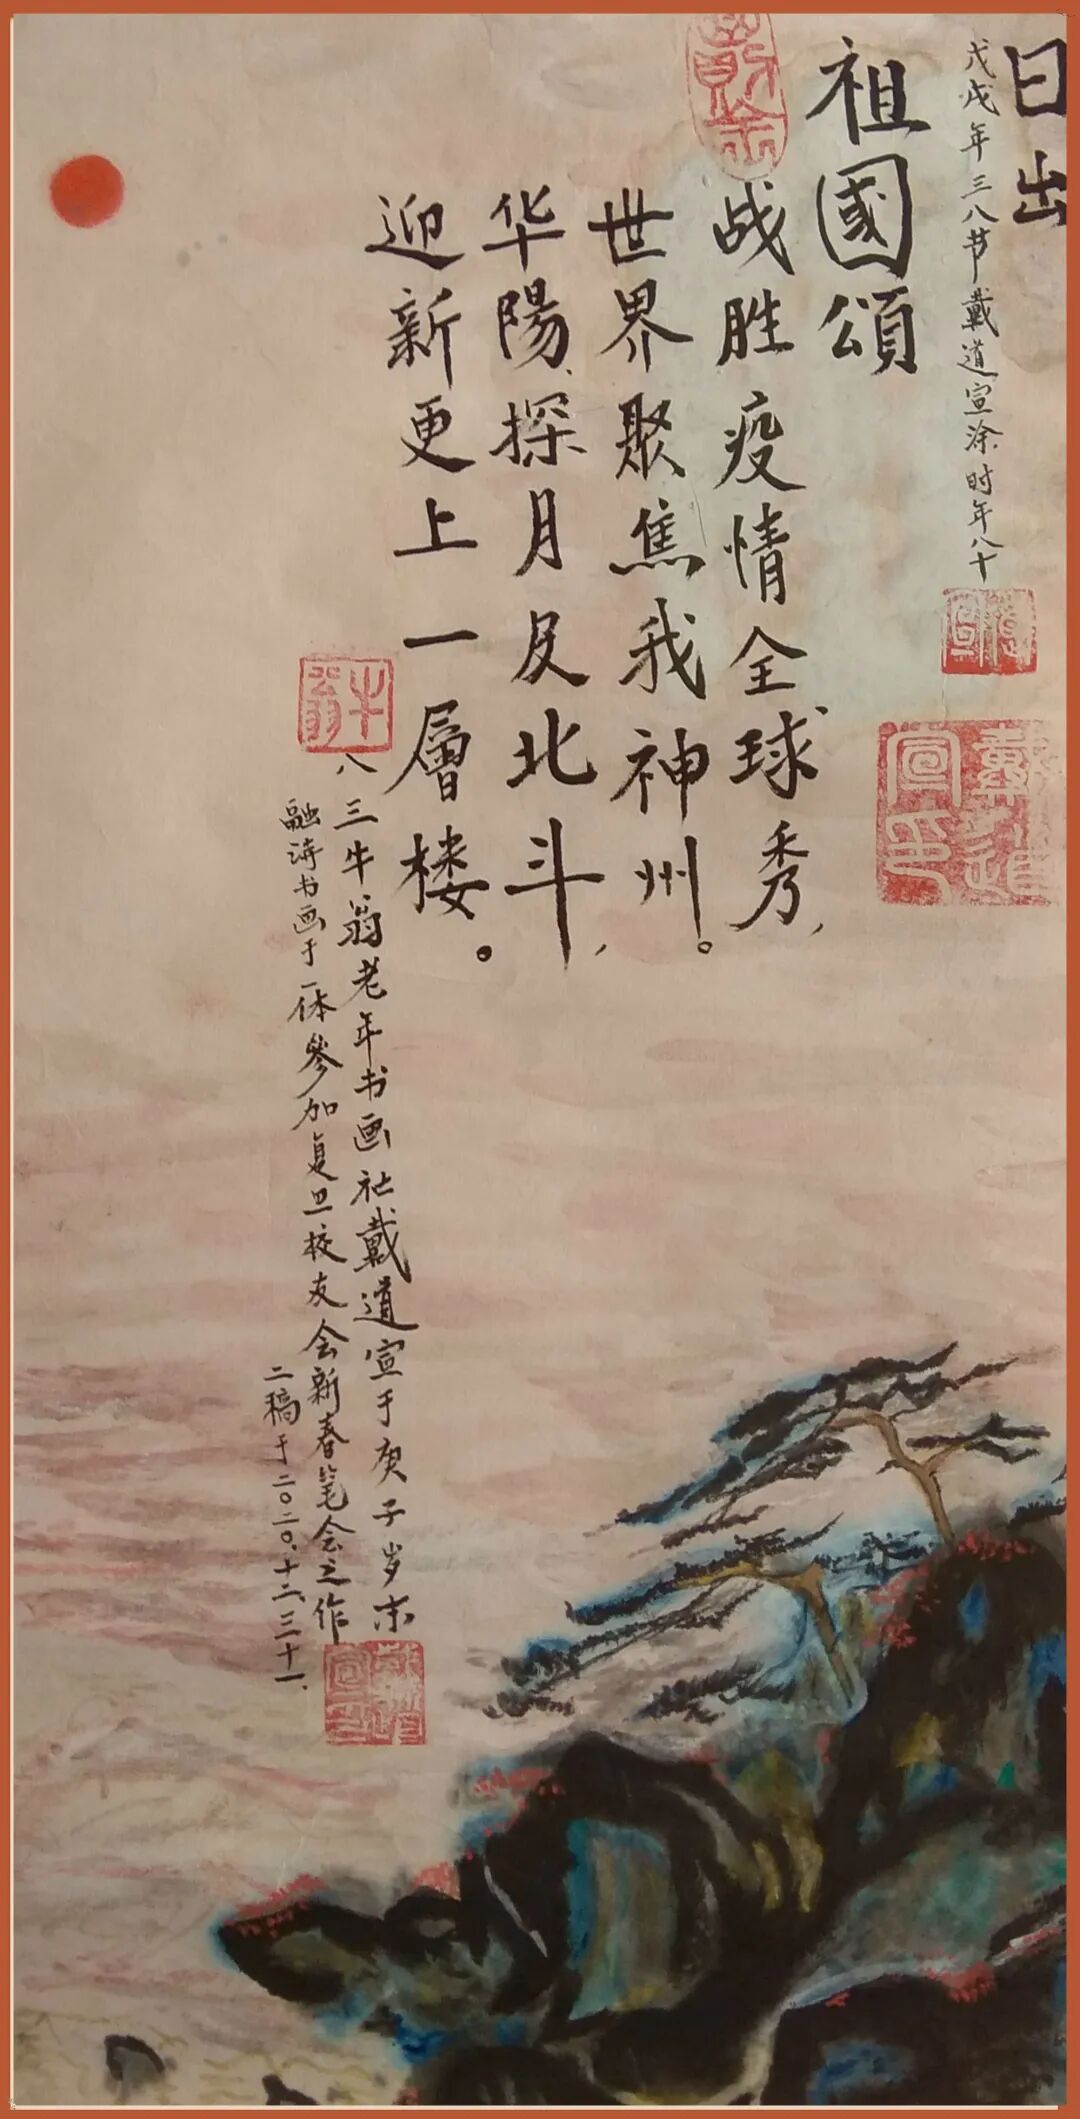 日出
戊戌年三八节戴道宣涂时年八十
祖國頌
战胜疫情全球秀,
世界聚焦我神州。
华陽探月及北斗,
迎新更上一層楼。
八三牛翁老年书画社戴道宣于庚子岁末
融诗书画于一体參加复旦校友会新春笔会之作
二稿于二〇二〇、十二、三十一.
牛翁
戴道宣印